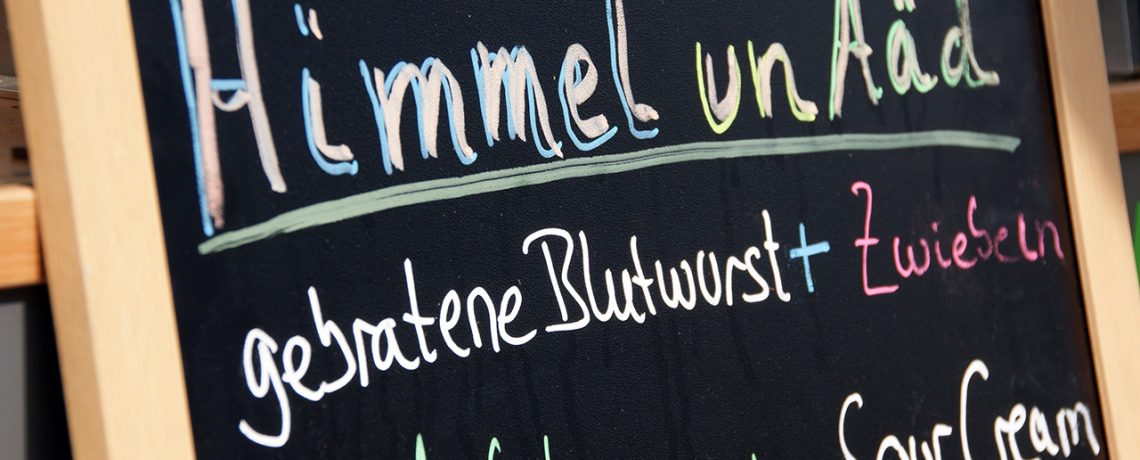 Himmel un Ääd
gebratene Blutwurst + Zwiebeln
Sour Cream